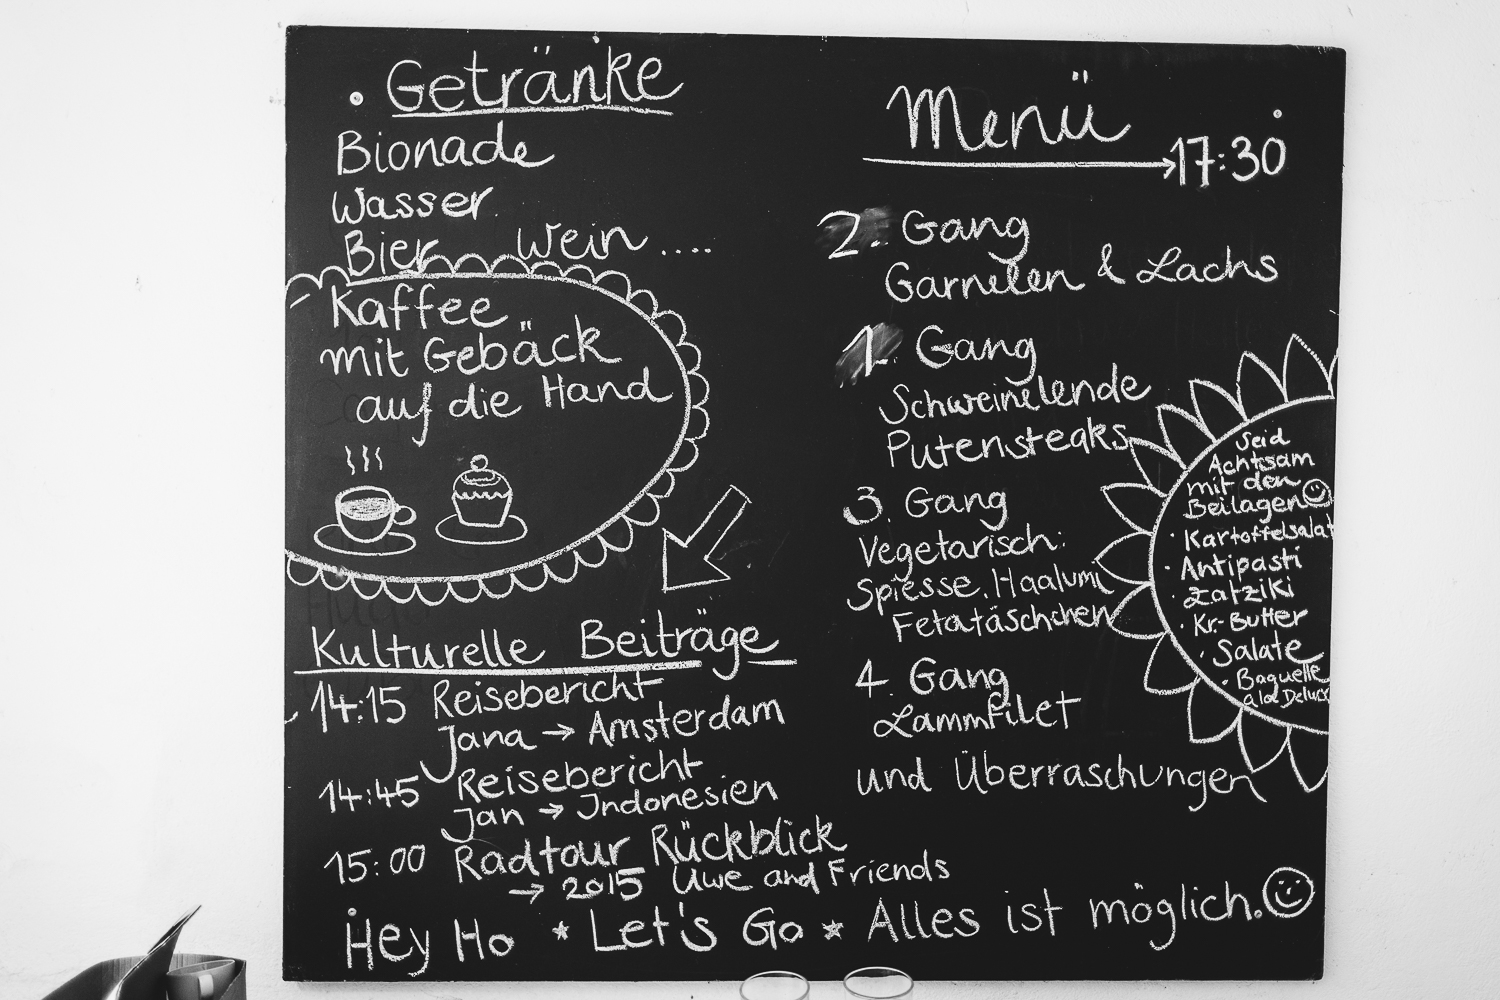 Getränke
Bionade
Wasser
Bier Wein ....
Kaffee
mit Gebäck
auf die Hand
Kulturelle Beiträge
14:15 Reisebericht
Jana → Amsterdam
14:45 Reisebericht
Jan → Indonesien
15:00 Radtour Rückblick
→ 2015 Uwe and Friends
Hey Ho * Let's Go * Alles ist möglich.
Menü
→ 17:30
2. Gang
Garnelen & Lachs
1. Gang
Schweinelende
Putensteaks
3 Gang
Vegetarisch:
Spiesse, Haalumi
Fetatäschchen
4 Gang
Lammfilet
und Überraschungen
Seid
Achtsam
mit den
Beilagen
· Kartoffelsalat
· Antipasti
· Zatziki
· Kr.-Butter
· Salate
· Baguette